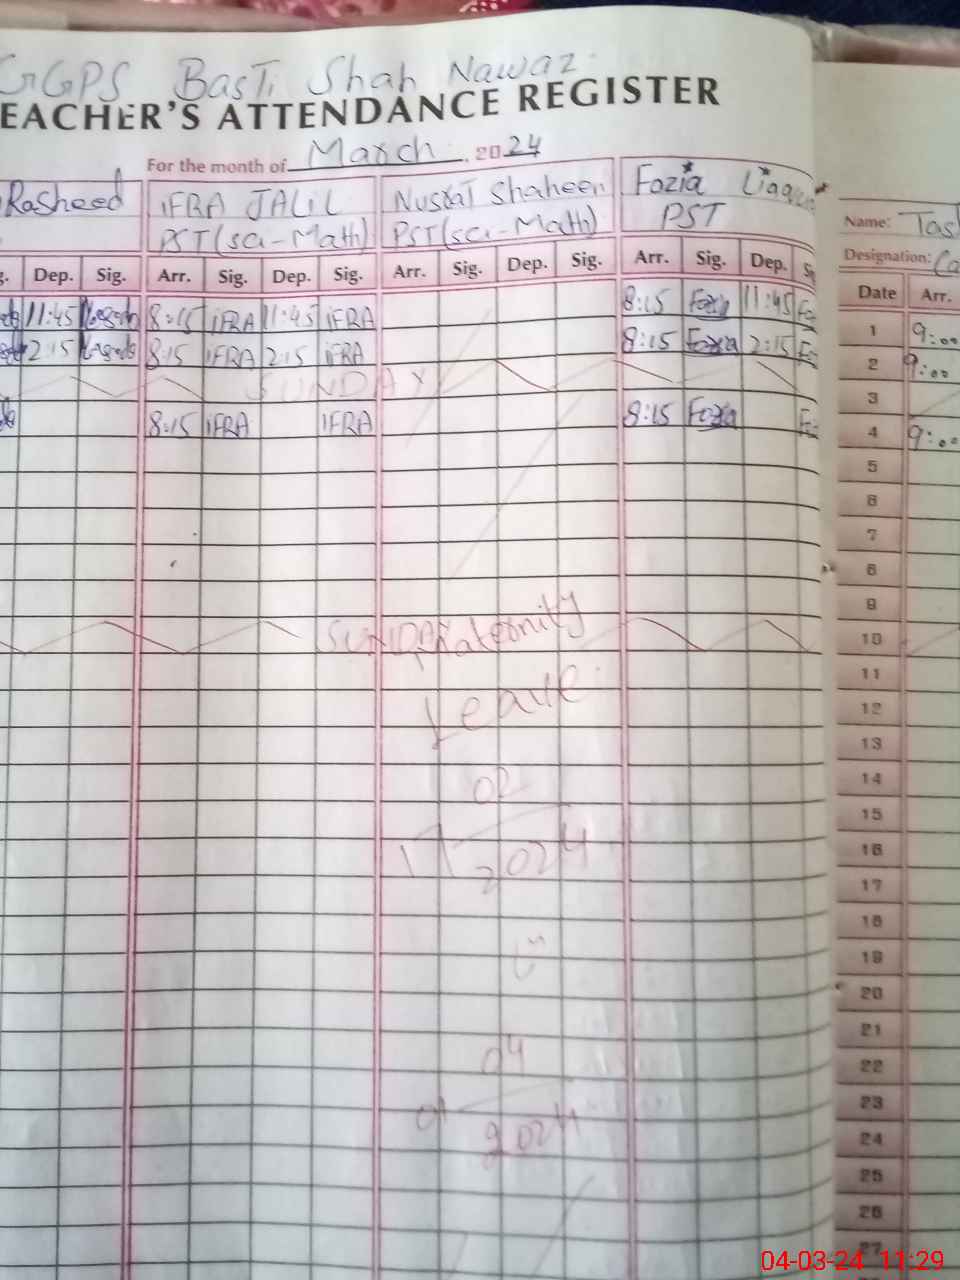 GGPS Basti Shah Nawaz
EACHER'S ATTENDANCE REGISTER
For the month of March, 2024
Rasheed
IFRA JALIL
PST (sci-Math)
Nusrat Shaheen
PST (sci-Math)
Fozia Liaquat
PST
Dep. Sig. Arr. Sig. Dep. Sig. Arr. Sig. Dep. Sig. Arr. Sig. Dep.
11:45 8:15 iFRA 11:45 iFRA 8:15 Fozia 11:45
2:15 8:15 iFRA 2:15 iFRA 8:15 Fozia 2:15
SUNDAY
8:15 iFRA IFRA 8:15 Fozia
SUNDAY
Maternity
Leave
02
2024
04
01
2024
Name:
Designation:
Date Arr.
1 9:00
2 9:00
3
4 9:00
5
6
7
8
9
10
11
12
13
14
15
16
17
18
19
20
21
22
23
24
25
26
27
04-03-24 11:29